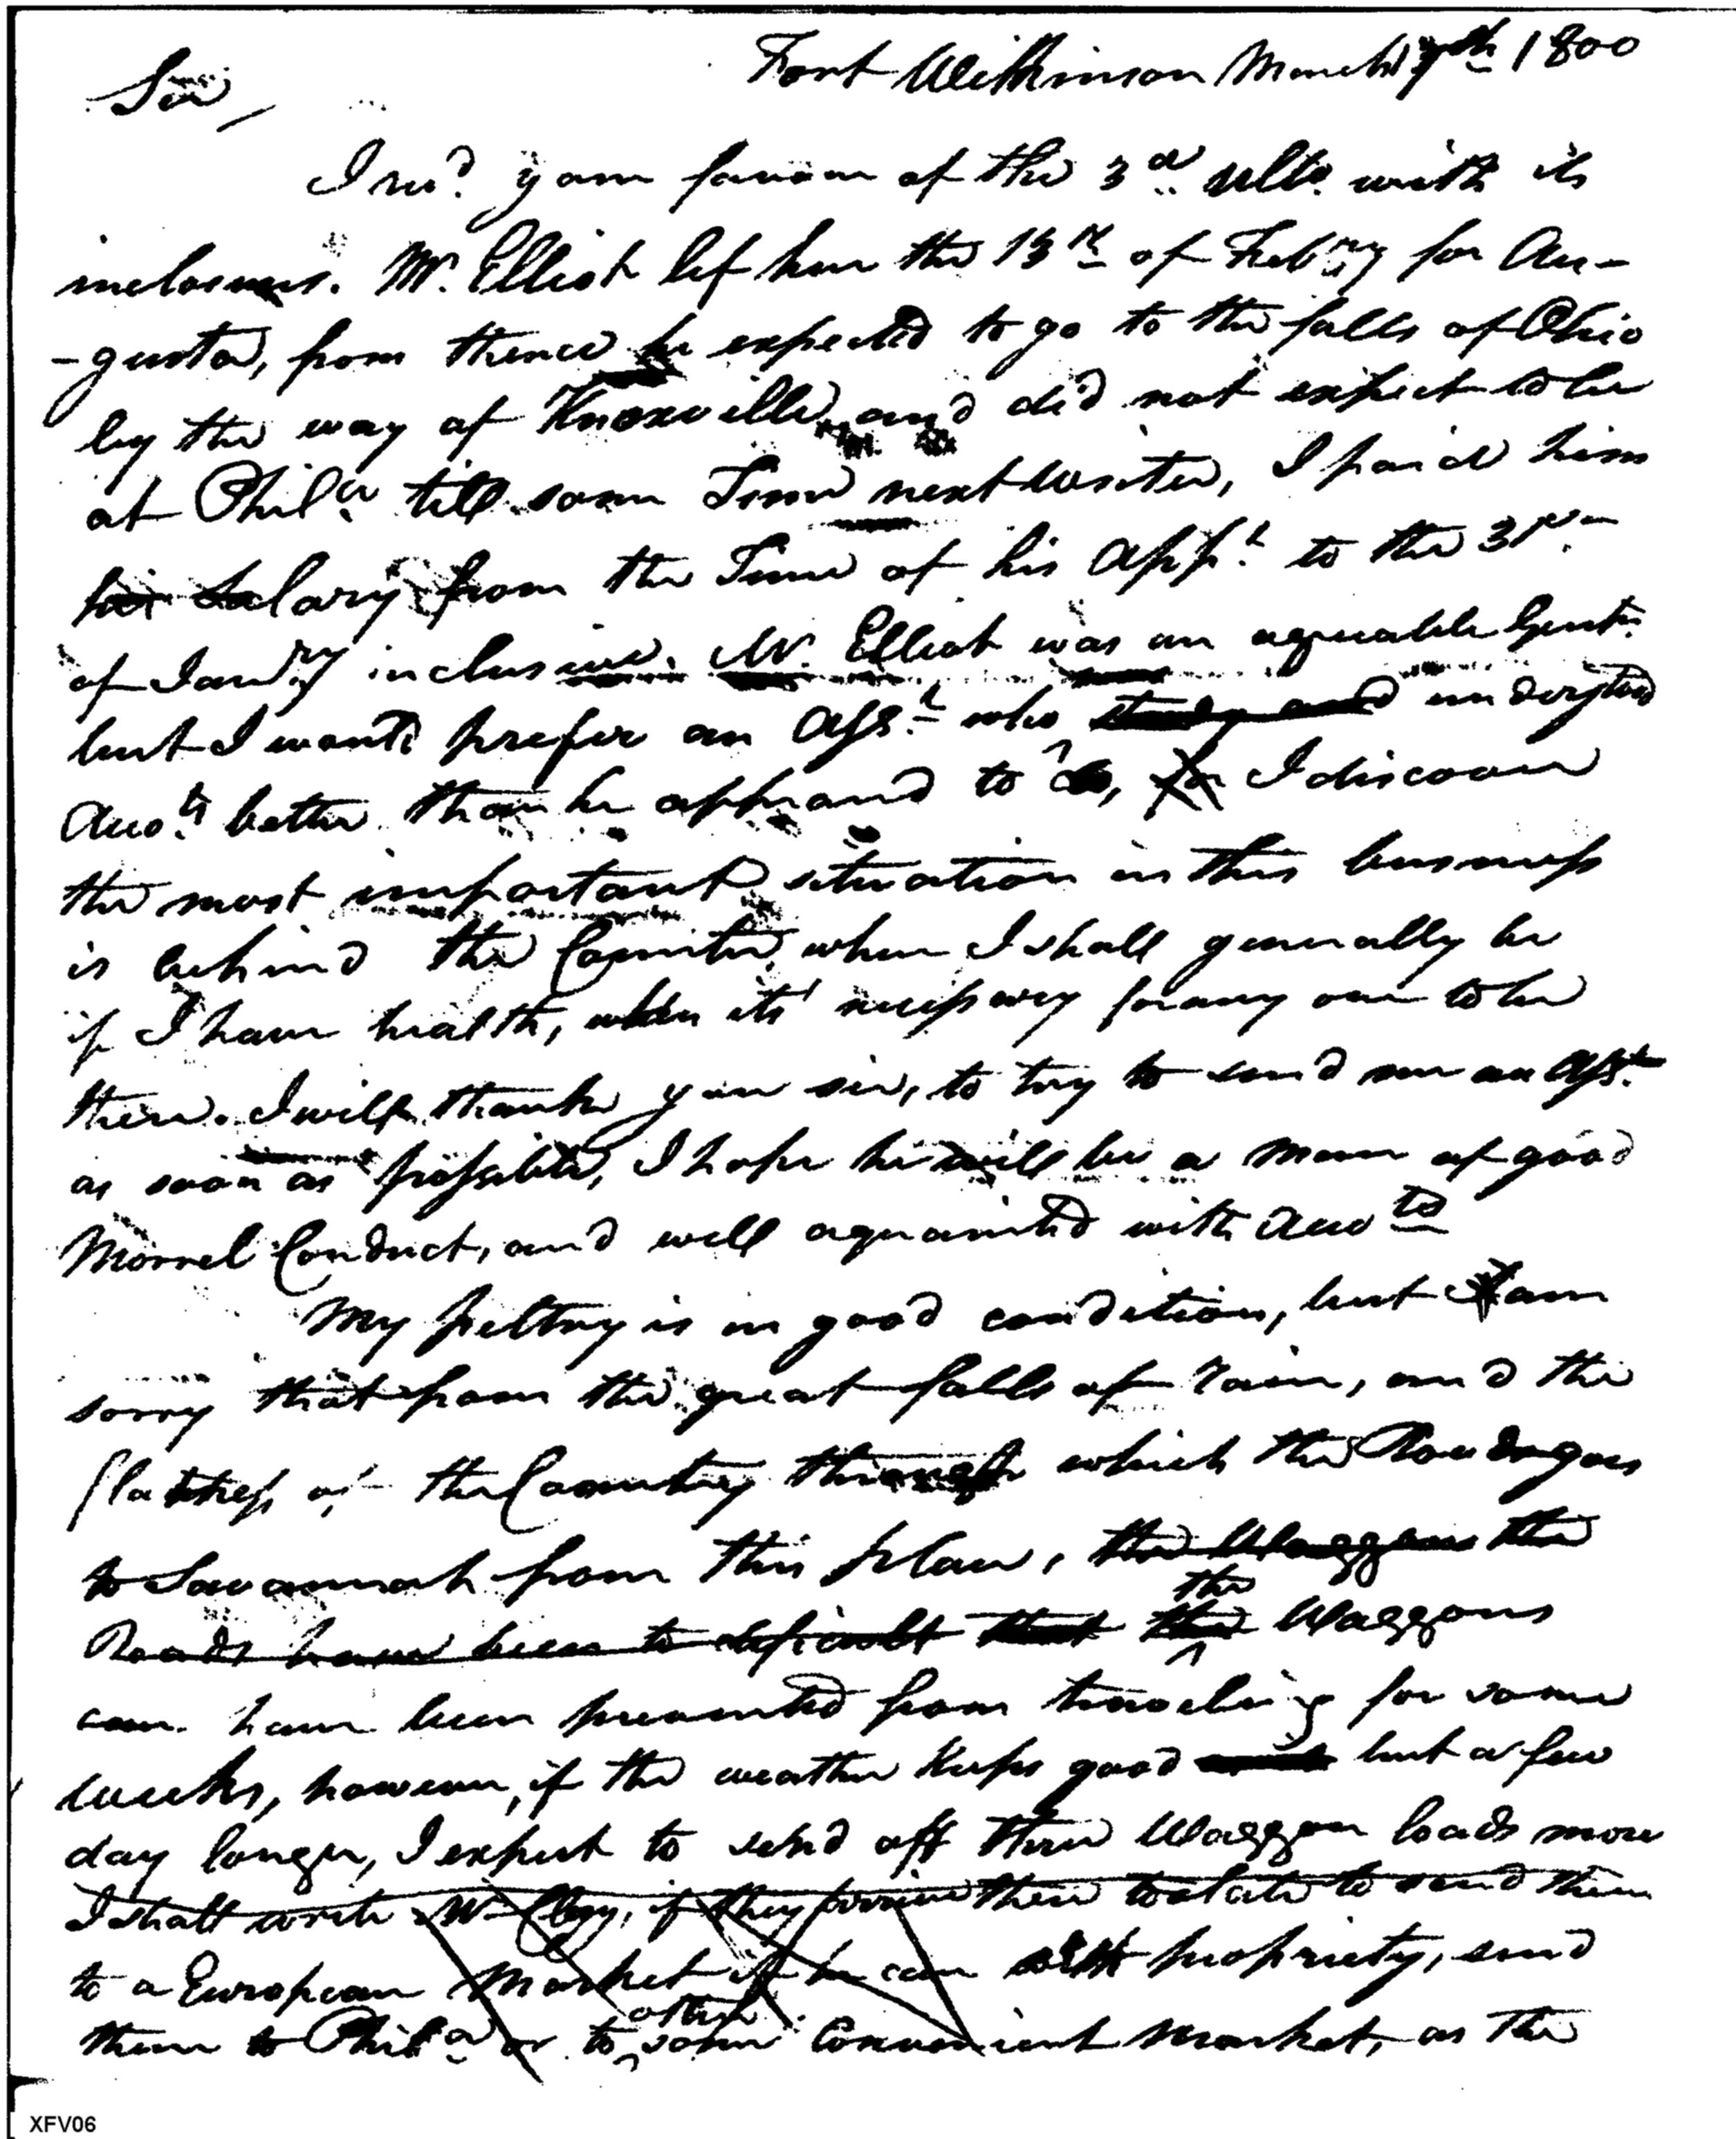 Fort Wilkinson March 7th 1800
Sir,
I recd. your favour of the 3d. ulto. with its
inclosures. Mr. Elliot lef here the 13th of Febry for Au-
-gusta, from thence he expected to go to the falls of Ohio
by the way of Knoxville, and did not expect to be
at Phila. till some Time next winter, I paid him
his Salary from the Time of his appt. to the 31st
of Janry inclusive. Mr. Elliot was an agreeable Gentn.
but I would prefer an Asst. who understood
Accots. better than he appeared to do, for I discover
the most important situation in this business
is behind the Counter, where I shall generally be
if I have health, when its necessary for any one to be
there. I will thank you sir, to try to send me an Asst.
as soon as possible, I hope he will be a man of good
Morrel Conduct, and well aquainted with Accots
My peltry is in good condition, but I am
sorry that from the great falls of rain, and the
flatness of the Country through which the Roads goes
to Savannah from this place, the Waggons the
Roads have been so dificult that the the Waggons
can have been prevented from traveling for some
weeks, however, if the weather keeps good but a few
day longer, I expect to send off three Waggon loads more
I shall write Mr. Clay, if they arrive there to late to send them
to a European Market if he can with propriety, send
them to Phila or to other some Convenient market, as the
XFV06